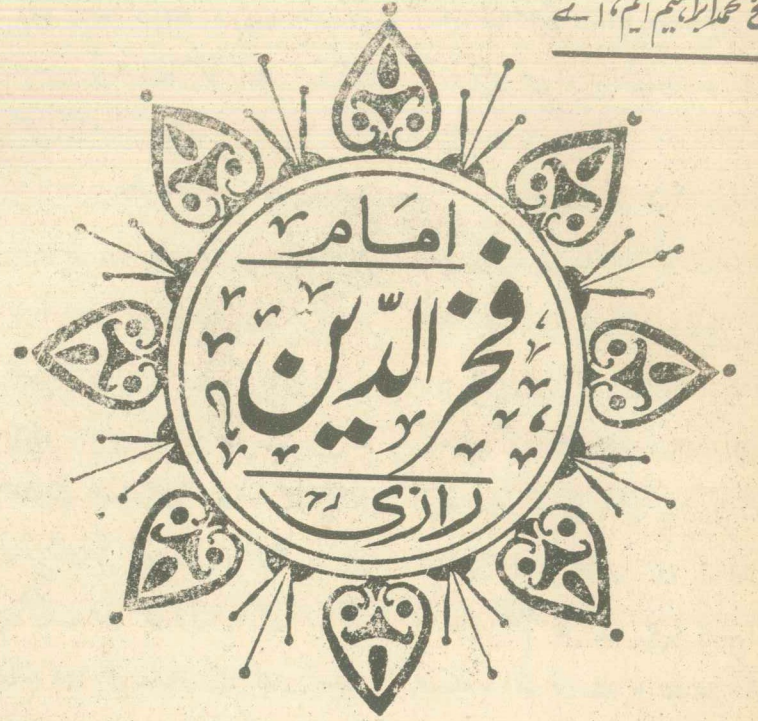 محمد ابراہیم ایم، اے
امام
فخر الدّین
رازی رح